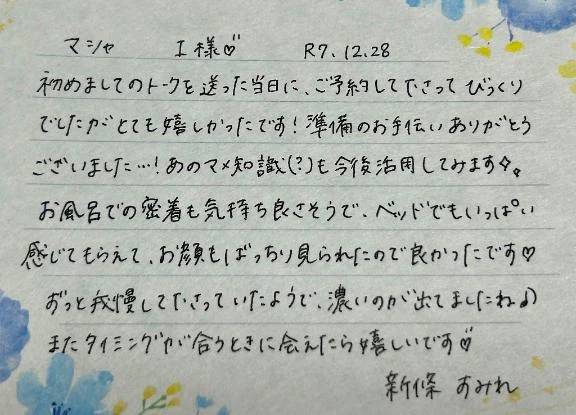 マシャ I様♡ R7.12.28
初めましてのトークを送った当日に、ご予約して下さってびっくり
でしたがとても嬉しかったです!準備のお手伝いありがとう
ございました…!あのマメ知識(?)も今後活用してみます✧。
お風呂での密着も気持ち良さそうで、ベッドでもいっぱい
感じてもらえて、お顔もばっちり見られたので良かったです♡
ずっと我慢して下さっていたようで、濃いのが出てましたね♪
またタイミングが合うときに会えたら嬉しいです♡
新條 すみれ